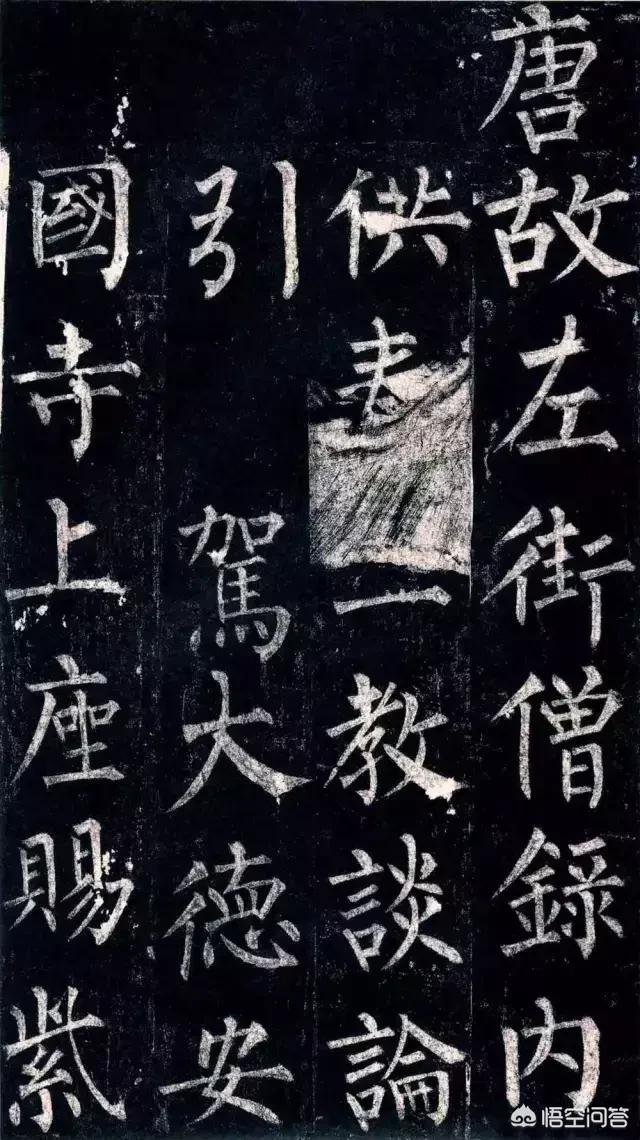 唐故左街僧錄内
供一教談論
引駕大德安
國寺上座賜紫
悟空问答